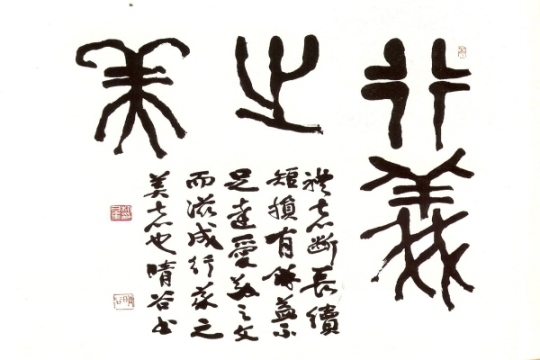 行義
之
美
禮者斷長續
短損有餘益不
足達愛敬之文
而滋成行義之
美者也晴谷书